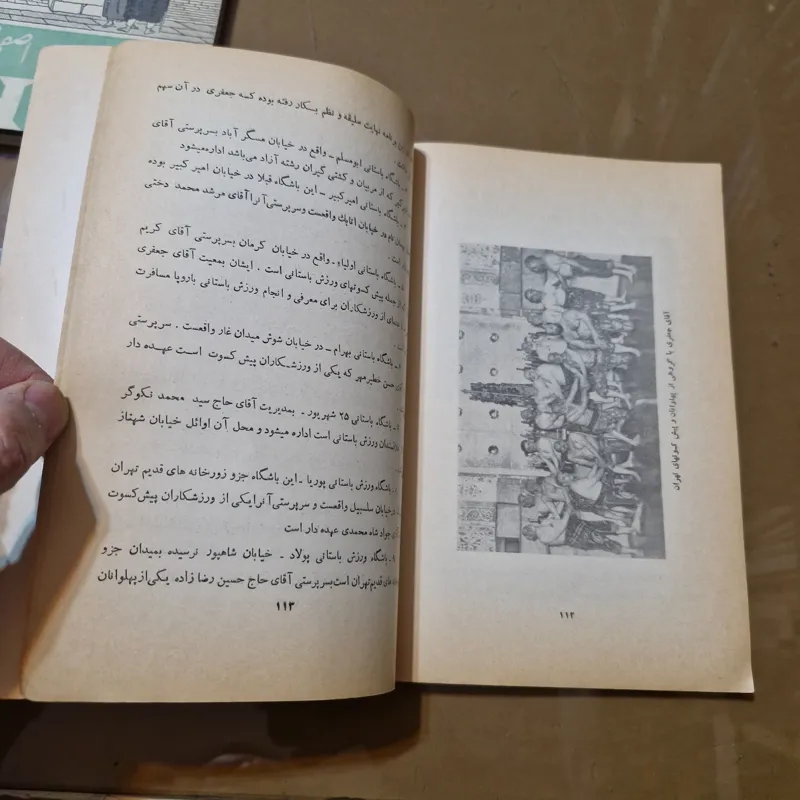 نهایت سلیقه و نظم بسکار رفته بوده کسه جعفری در آن سهم
باشگاه باستانی ابومسلم ـ واقع در خیابان مسگر آباد بسرپرستی آقای
که از مربیان و کشتی گیران رشته آزاد می‌باشد اداره‌میشود
باشگاه باستانی امیر کبیر ـ این باشگاه قبلا در خیابان امیر کبیر بوده
در خیابان اتابك واقعست وسرپرستی آنرا آقای مرشد محمد دختی
است .
باشگاه باستانی اولیاء ـ واقع در خیابان کرمان بسرپرستی آقای کریم
جمله پیش کسوتهای ورزش باستانی است . ایشان بمعیت آقای جعفری
از ورزشکاران برای معرفی و انجام ورزش باستانی باروپا مسافرت
باشگاه باستانی بهرام ـ در خیابان شوش میدان غار واقعست . سرپرستی
حسن خطیرمهر که یکی از ورزشـکاران پیش کسوت است عهـده دار
باشگاه باستانی ۲۵ شهریور ـ بمدیریت آقای حاج سید محمد نکوگر
ورزش باستانی است اداره میشود و محل آن اوائل خیابان شهناز
باشگاه ورزش باستانی پوریا ـ این باشگاه جزو زورخانه های قدیم تهران
خیابان سلسبیل واقعست و سرپرستی آنرا یکی از ورزشکاران پیش‌کسوت
جواد شاه محمدی عهده دار است
باشگاه ورزش باستانی پولاد ـ خیابان شاهپور نرسیده بمیدان جزو
های قدیم تهران است بسرپرستی آقای حاج حسین رضا زاده یکی از پهلوانان
۱۱۳
آقای جعفری با گروهی از پهلوانان و پیش کسوتهای تهران
۱۱۲